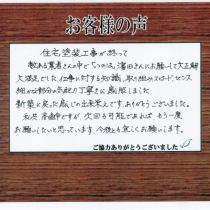 お客様の声
住宅塗装工事が終って
数ある業者さんの中で「いろは」濱田さんにお願いして大正解
大満足でした。仕事に対する知識、取り組み スピード、センス
細かな部分の気配り丁寧さに感服しました。
新築に戻った感じの出来栄えです ありがとうございました。
私共 高齢ですが、次回も可能であれば、もう一度
お願いしたいと思っています 今後とも宜しくお願いします。
ご協力ありがとうございました